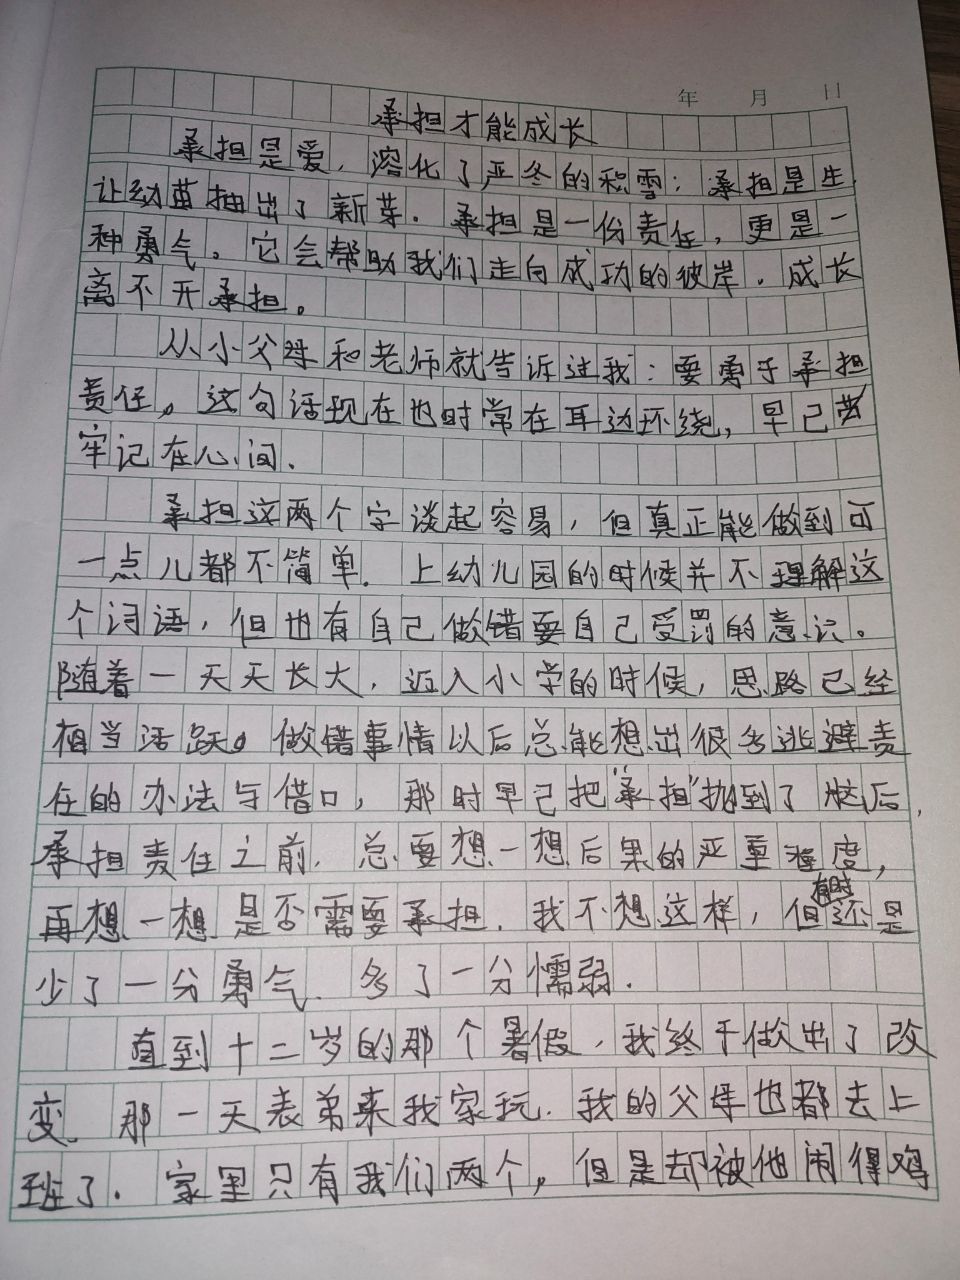 年 月 日
承担才能成长
承担是爱，溶化了严冬的积雪；承担是生，
让幼苗抽出了新芽．承担是一份责任，更是一
种勇气。它会帮助我们走向成功的彼岸．成长
离不开承担。
从小父母和老师就告诉过我：要勇于承担
责任。这句话现在也时常在耳边环绕，早已
牢记在心间．
承担这两个字谈起容易，但真正能做到可
一点儿都不简单．上幼儿园的时候并不理解这
个词语，但也有自己做错要自己受罚的意识。
随着一天天长大，迈入小学的时候，思路已经
相当活跃。做错事情以后总能想出很多逃避责
任的办法与借口，那时早已把“承担”抛到了脑后，
承担责任之前．总要想一想后果的严重程度，
再想一想是否需要承担．我不想这样，但有时还是
少了一分勇气．多了一分懦弱．
直到十二岁的那个暑假．我终于做出了改
变．那一天表弟来我家玩．我的父母也都去上
班了．家里只有我们两个，但是却被他闹得鸡